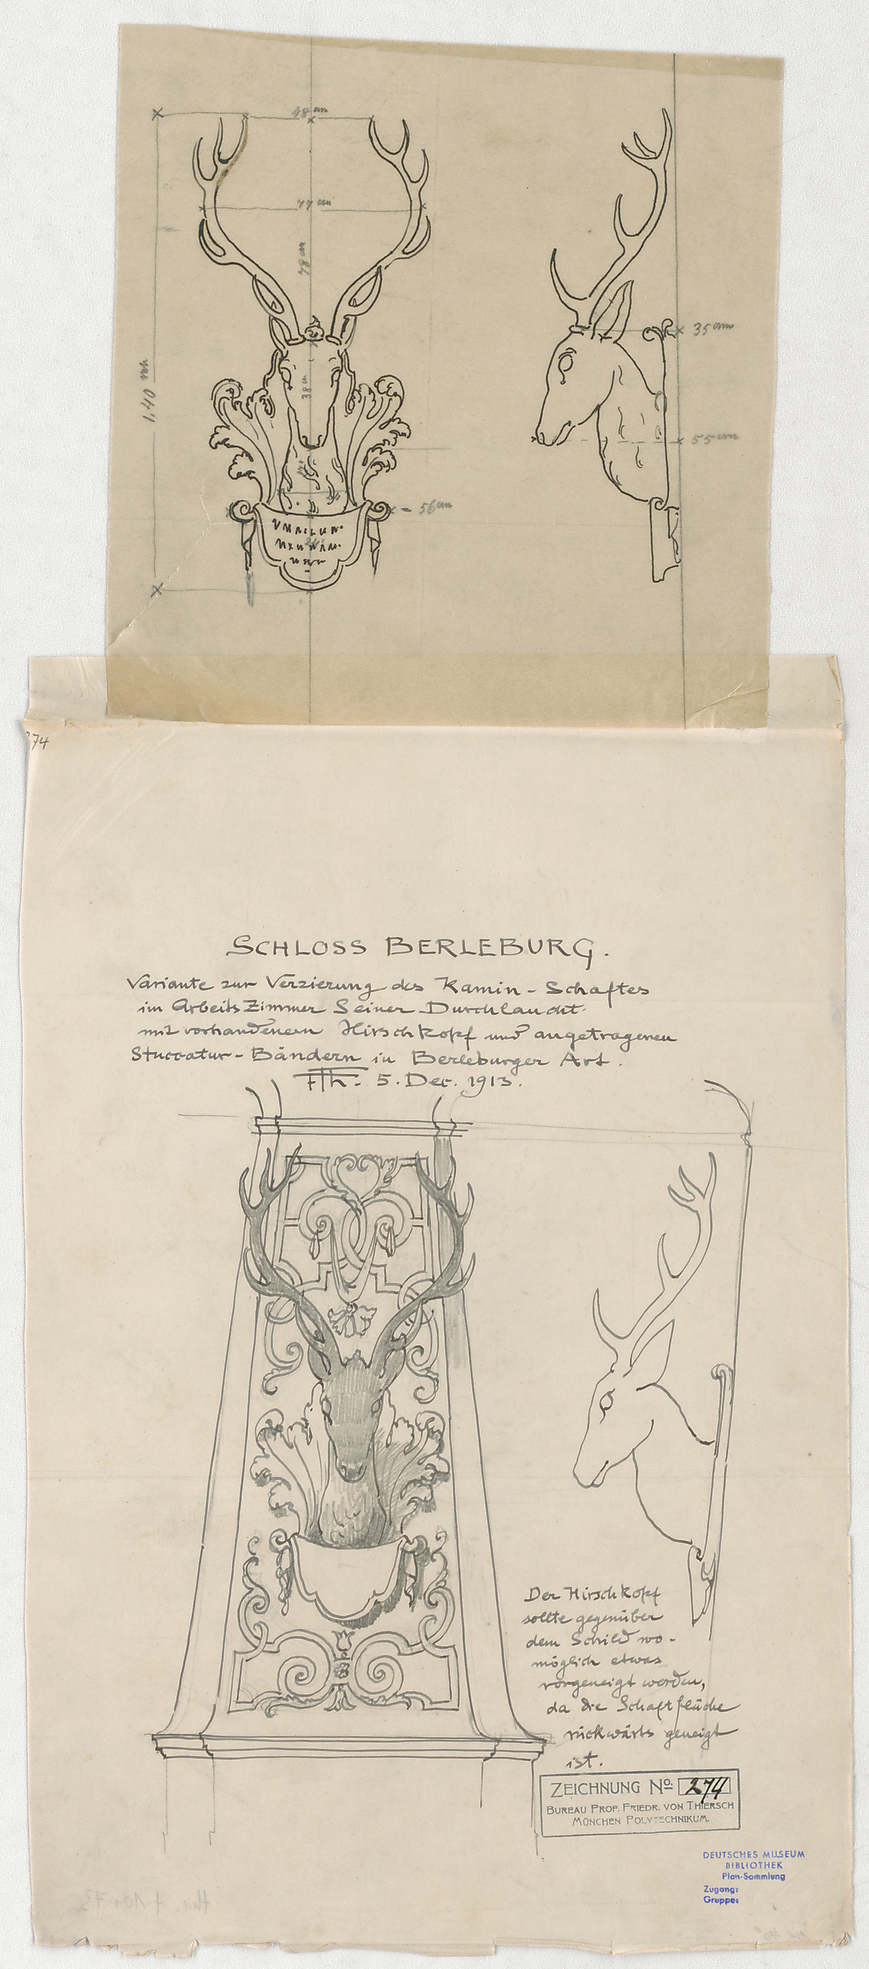 48 cm
77 cm
78 cm
35 cm
1,40 m
38 cm
55 cm
56 cm
274
SCHLOSS BERLEBURG.
Variante zur Verzierung des Kamin-Schaftes
im ArbeitsZimmer Seiner Durchlaucht
mit vorhandenem Hirschkopf und angetragenen
Stuccatur-Bändern in Berleburger Art.
FTh. 5. Dec. 1913.
Der Hirschkopf
sollte gegenüber
dem Schild wo-
möglich etwas
vorgeneigt werden,
da die Schaftfläche
rückwärts geneigt
ist.
ZEICHNUNG No: 274
BUREAU PROF. FRIEDR. VON THIERSCH
MÜNCHEN POLYTECHNIKUM.
DEUTSCHES MUSEUM
BIBLIOTHEK
Plan-Sammlung
Zugang:
Gruppe: